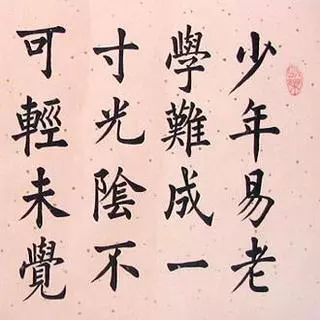 少年易老
學難成一
寸光陰不
可輕未覺